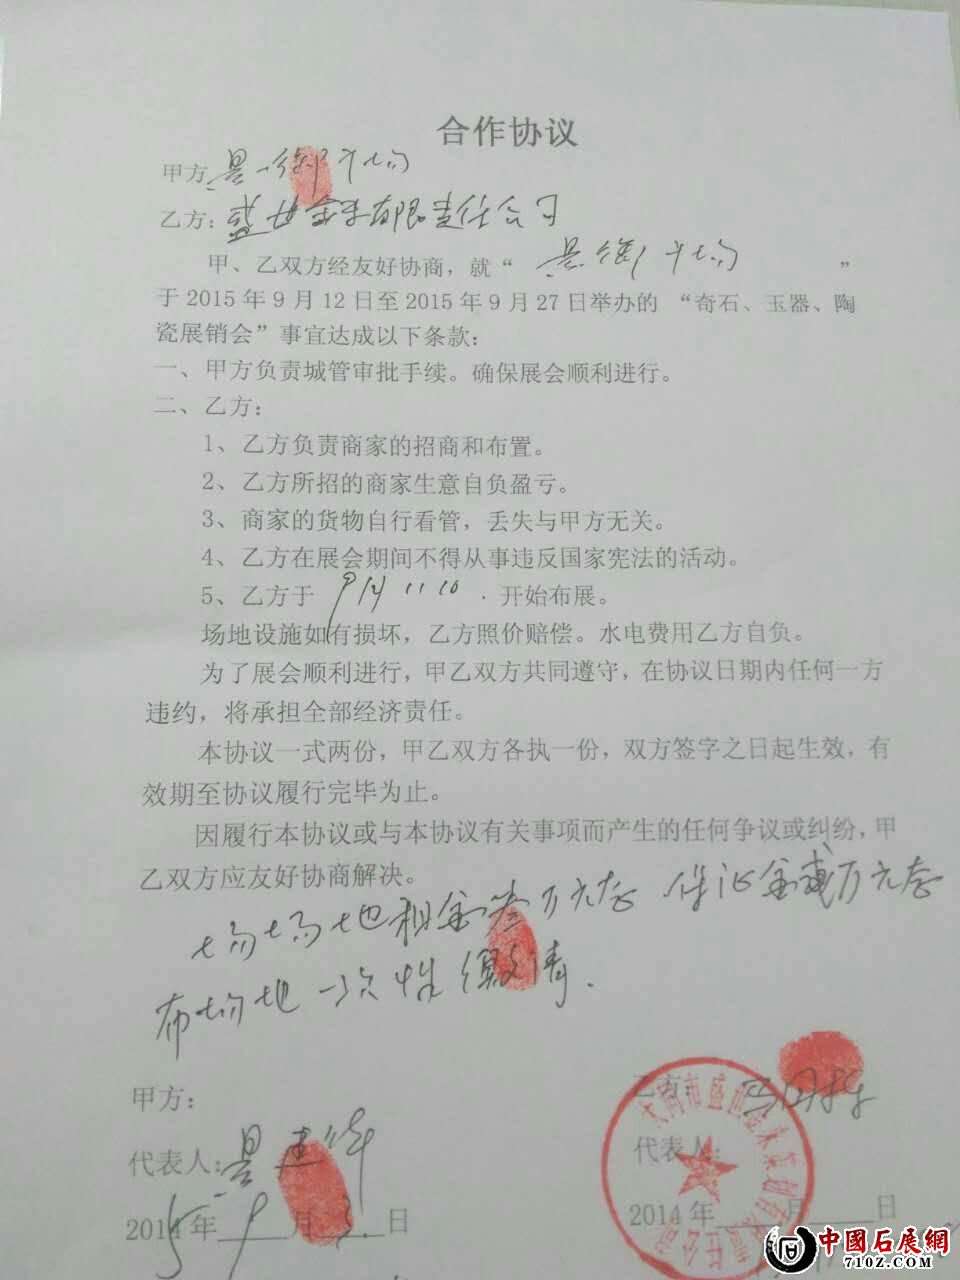 合作协议
甲方
乙方：盛世 有限责任公司
甲、乙双方经友好协商，就“ ”
于2015年9月12日至2015年9月27日举办的“奇石、玉器、陶
瓷展销会”事宜达成以下条款：
一、甲方负责城管审批手续。确保展会顺利进行。
二、乙方：
1、乙方负责商家的招商和布置。
2、乙方所招的商家生意自负盈亏。
3、商家的货物自行看管，丢失与甲方无关。
4、乙方在展会期间不得从事违反国家宪法的活动。
5、乙方于 9月11 10 开始布展。
场地设施如有损坏，乙方照价赔偿。水电费用乙方自负。
为了展会顺利进行，甲乙双方共同遵守，在协议日期内任何一方
违约，将承担全部经济责任。
本协议一式两份，甲乙双方各执一份，双方签字之日起生效，有
效期至协议履行完毕为止。
因履行本协议或与本协议有关事项而产生的任何争议或纠纷，甲
乙双方应友好协商解决。
场地租金叁万元 保证金贰万元
布场地一次性缴清.
甲方：
乙方：
代表人：景建华
代表人：
2014年 9 月 日
2014年 月 日
中國石展網
71OZ.COM